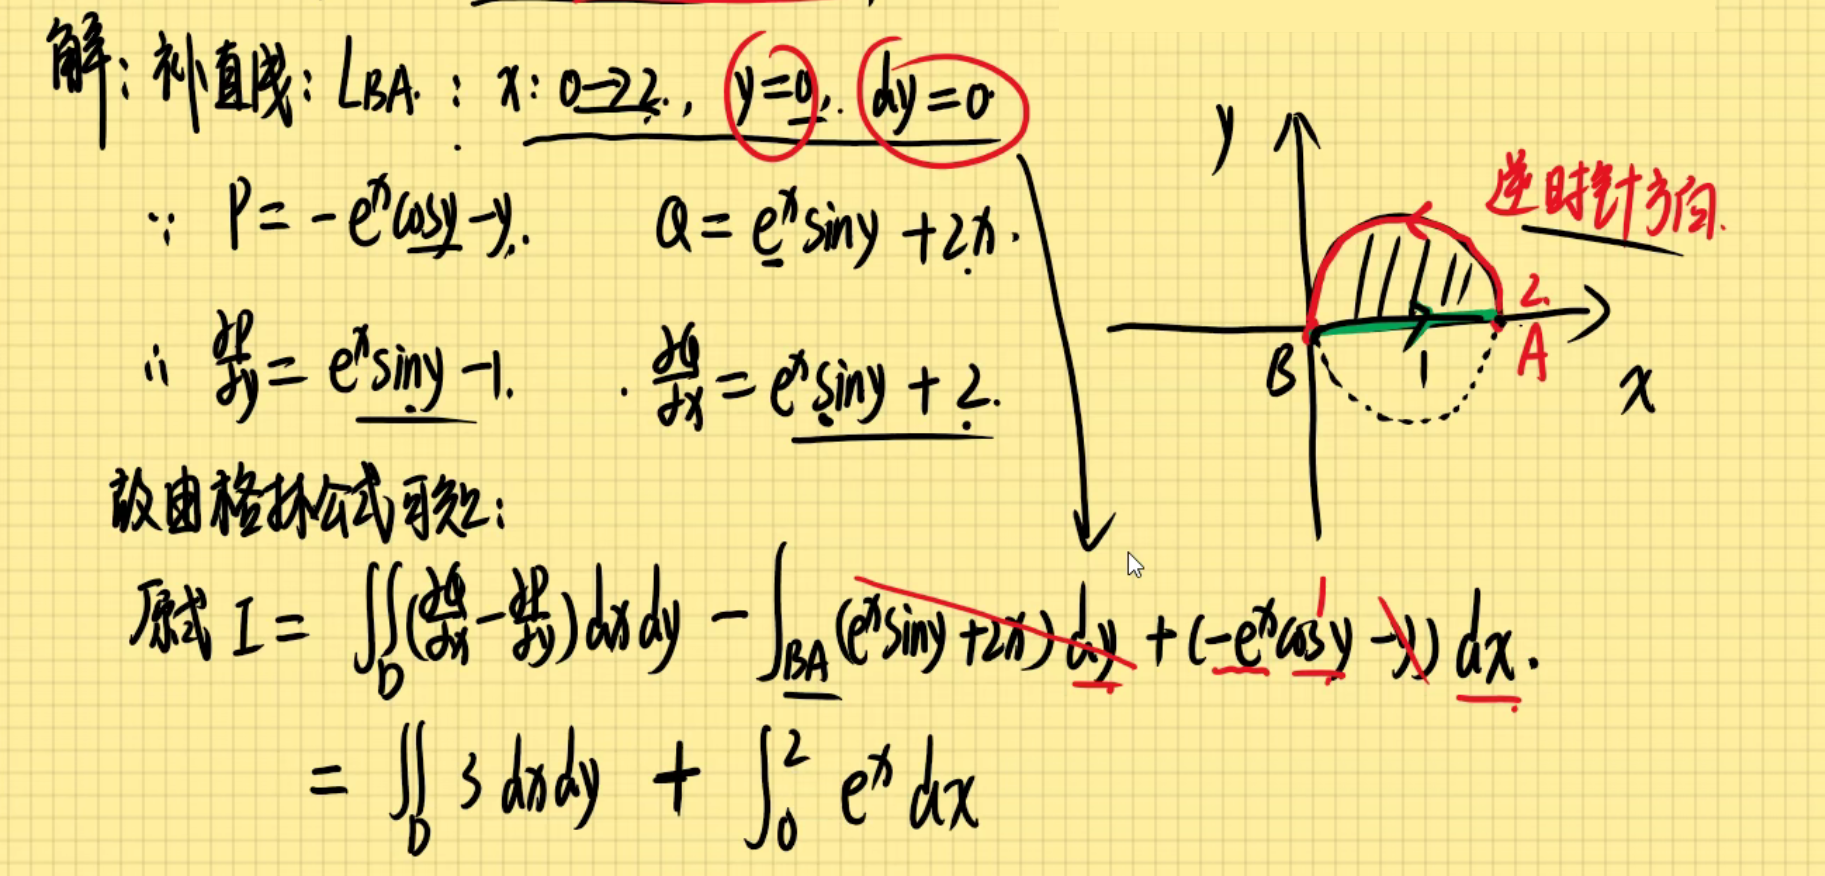 解：补直线：L_BA：x：0→2，y=0，dy=0
y
逆时针方向.
∵ P=-e^x cosy-y. Q=e^x siny+2x.
2.
B 1 A
x
∴ ∂P/∂y=e^x siny-1. ∂Q/∂x=e^x siny+2.
故由格林公式可知：
原式 I=∬_D(∂Q/∂x-∂P/∂y)dxdy-∫_BA(e^x siny+2x)dy+(-e^x cosy-y)dx.
1
=∬_D 3dxdy+∫_0^2 e^x dx